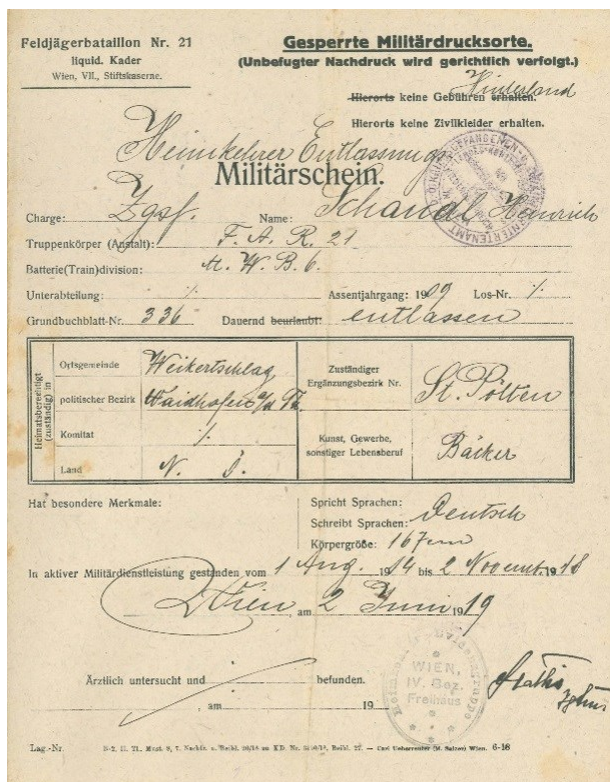 Feldjägerbataillon Nr. 21
liquid. Kader
Wien, VII., Stiftskaserne.
Gesperrte Militärdrucksorte.
(Unbefugter Nachdruck wird gerichtlich verfolgt.)
Hinterland
Hierorts keine Gebühren erhalten.
Hierorts keine Zivilkleider erhalten.
Heimkehrer Entlassungs
Militärschein.
Charge: Zgsf. Name: Schandl Heinrich
Truppenkörper (Anstalt): F. A. R. 21
Batterie(Train)division: M. W. B. 6.
Unterabteilung: ⁒ Assentjahrgang: 1909 Los-Nr. ⁒
Grundbuchblatt-Nr. 336 Dauernd beurlaubt: entlassen
Heimatsberechtigt (zuständig) in
Ortsgemeinde Weikertschlag
politischer Bezirk Waidhofen a/d Th.
Komitat ⁒
Land N. Ö.
Zuständiger Ergänzungsbezirk Nr. St. Pölten
Kunst, Gewerbe, sonstiger Lebensberuf Bäcker
Hat besondere Merkmale:
Spricht Sprachen: Deutsch
Schreibt Sprachen:
Körpergröße: 167 cm
In aktiver Militärdienstleistung gestanden vom 1 Aug. 1914 bis 2 Novemb. 1918
Wien, am 2 Juni 1919
Ärztlich untersucht und befunden.
, am 19
WIEN,
IV. Bez.
Freihaus
Lag.-Nr. Carl Ueberreuter (M. Salzer) Wien. 6-18